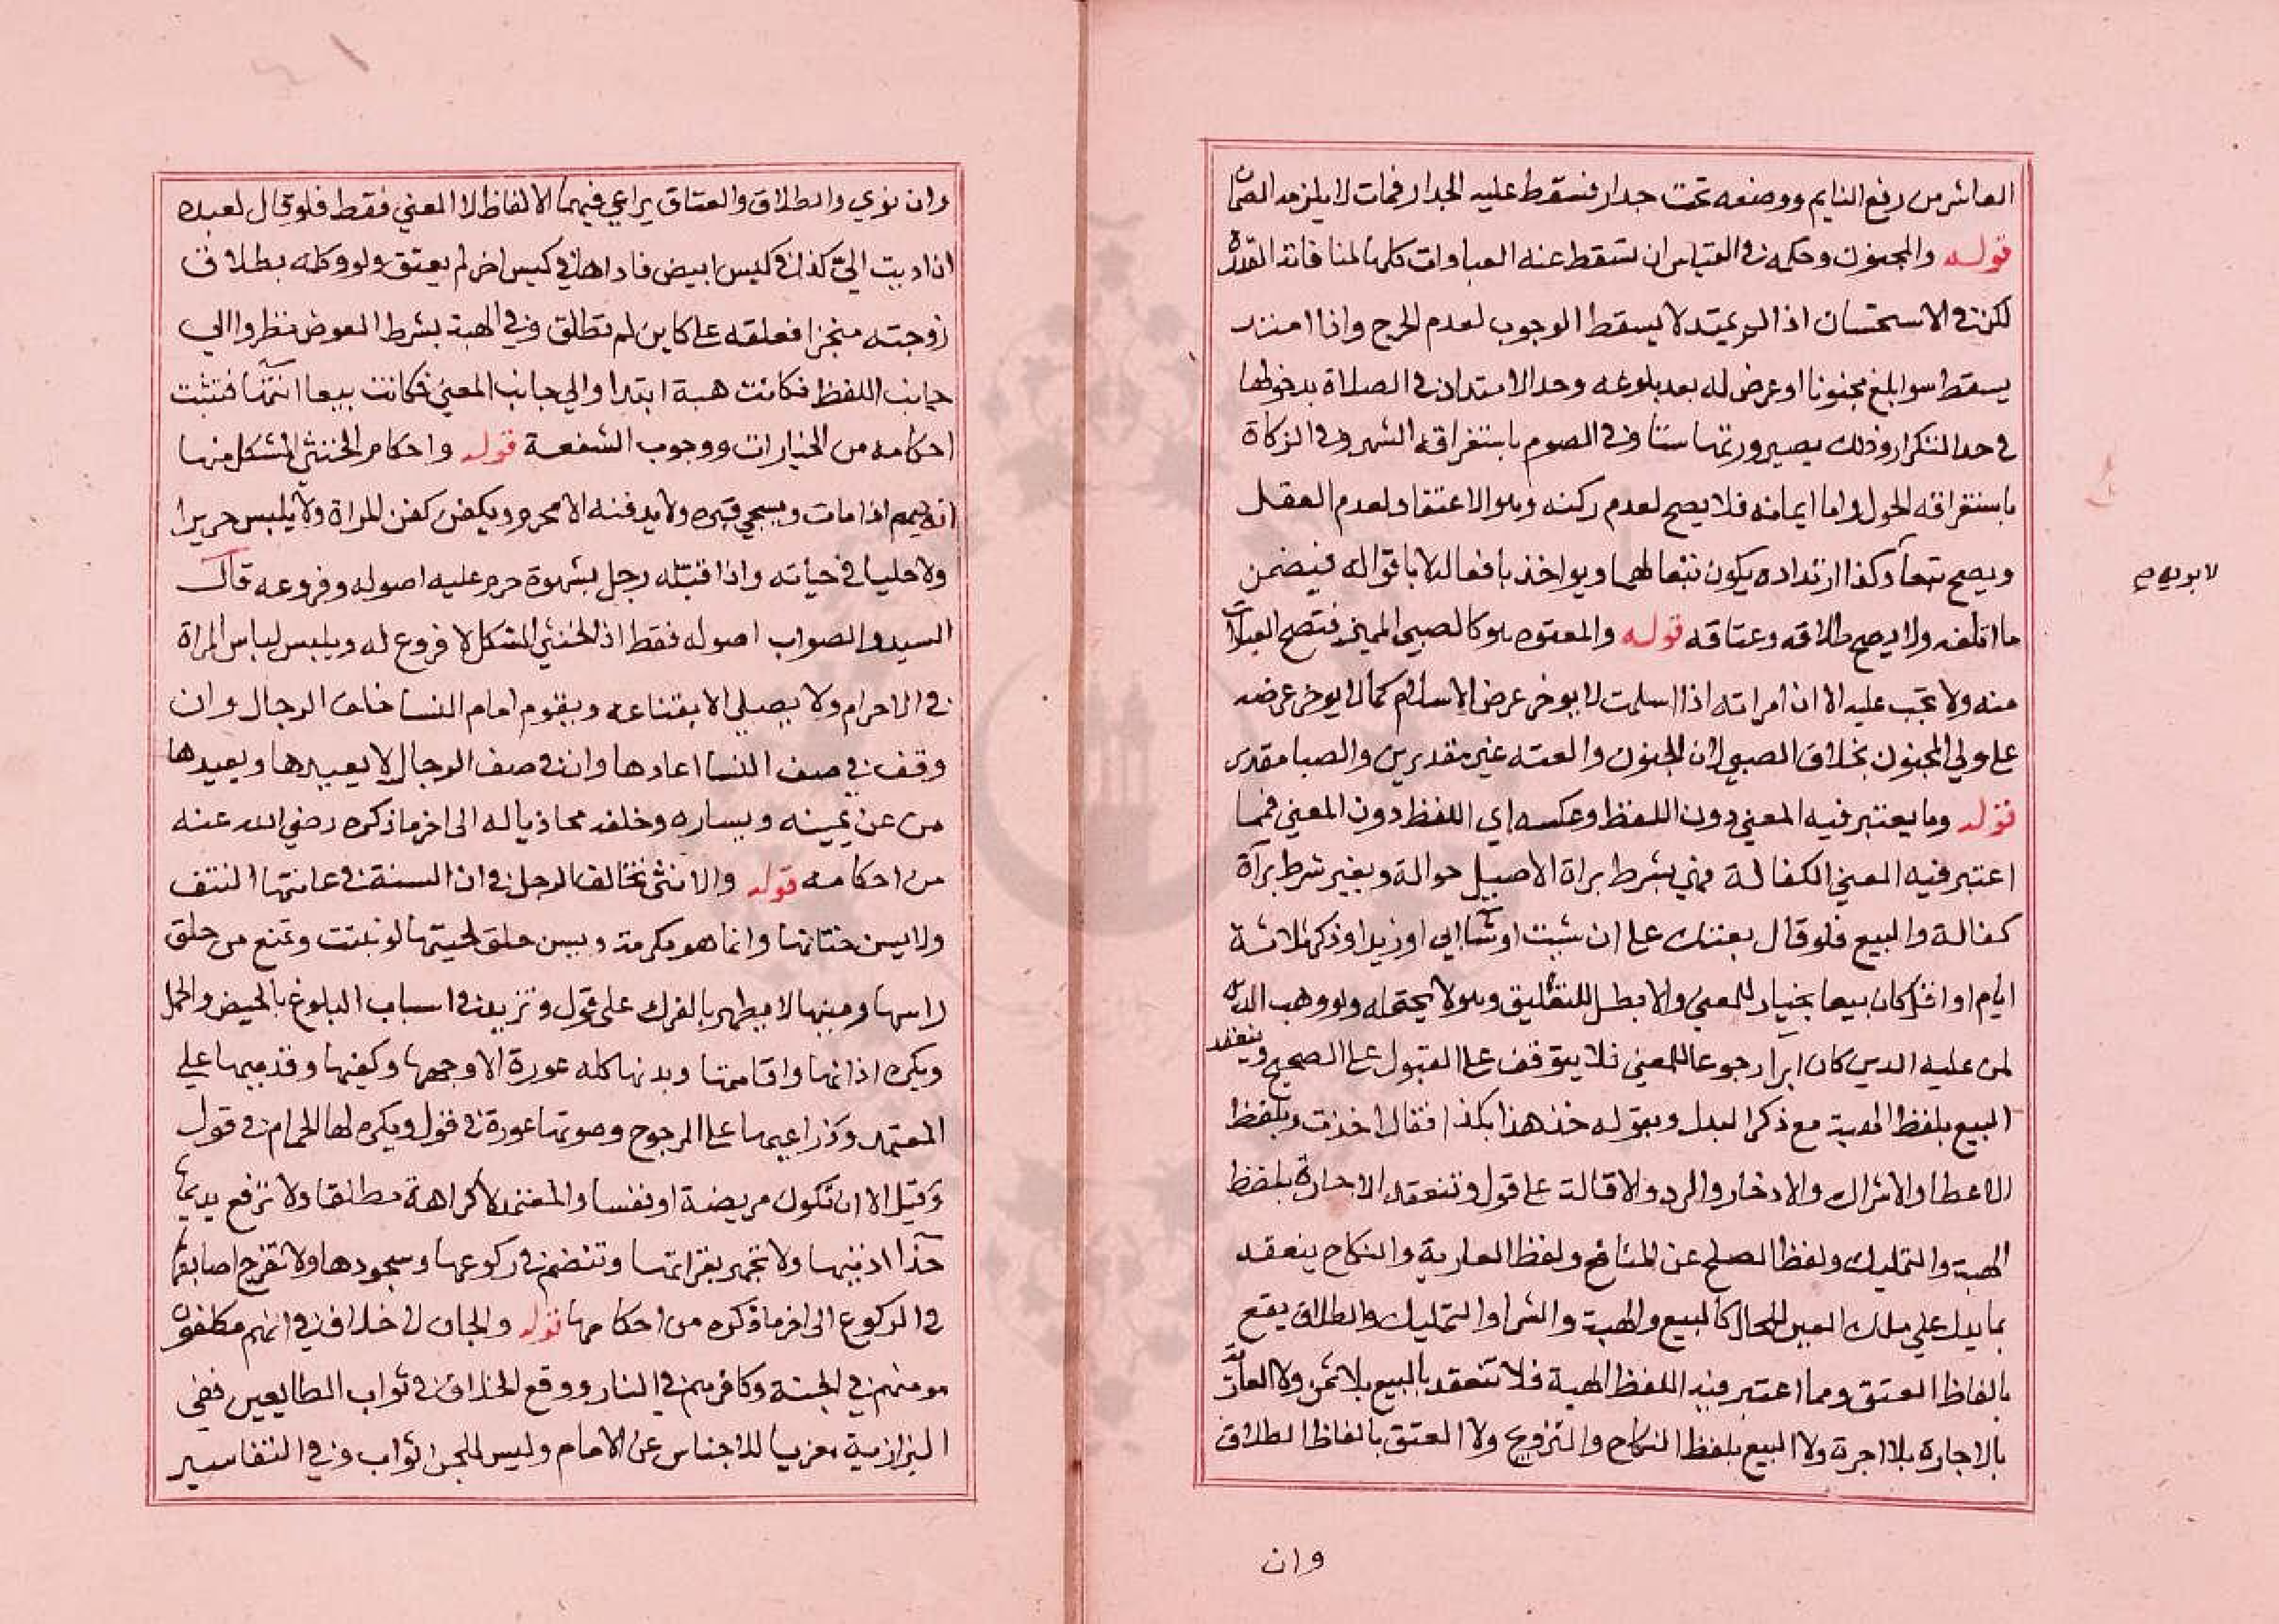 العاشر من رفع النايم ووضعه تحت جدار فسقط عليه الجدار فمات لا يلزمه الضمان
قوله والمجنون وحكمه في القياس ان تسقط عنه العبادات كلها لمنافاته القدرة
لكن في الاستحسان اذا لم يمتد لا يسقط الوجوب لعدم الحرج واذا امتد
يسقط سوا بلغ مجنونا او عرض له بعد بلوغه وحد الامتداد في الصلاة بدخولها
في حد التكرار وذلك بصيرورتها ستا وفي الصوم باستغراقه الشهر وفي الزكاة
باستغراقه الحول واما ايمانه فلا يصح لعدم ركنه وهو الاعتقاد لعدم العقل
لابويه صح
ويصح تبعا وكذا ارتداده يكون تبعا لهما ويواخذ بافعاله لا باقواله فيضمن
ما اتلفه ولا يصح طلاقه وعتاقه قوله والمعتوه هو كالصبي المميز فتصح العبادات
منه ولا تجب عليه الا ان امراته اذا اسلمت لا يوخر عرض الاسلام كما لا يوخر عرضه
على ولي المجنون بخلاف الصبي لان الجنون والعته غير مقدرين والصبا مقدر
قوله وما يعتبر فيه المعني دون اللفظ وعكسه اي اللفظ دون المعني فمما
اعتبر فيه المعني الكفالة فهي بشرط براة الاصيل حوالة وبغير شرط برآة
كفالة والبيع فلو قال بعتك علي ان شيت او شا ابي او زيد او ذكر ثلاثة
ايام او اقل كان بيعا بخيار للمعني والا بطل للتعليق وهو لا يحتمله ولو وهب الدين
لمن عليه الدين كان ابرآ رجوعا للمعني فلا يتوقف علي القبول علي الصحيح وينعقد
البيع بلفظ الهبة مع ذكر البدل وبقوله خذ هذا بكذا فقال اخذت وبلفظ
الاعطا والاشراك والادخار والرد والاقالة علي قول وتنعقد الاجارة بلفظ
الهبة والتمليك ولفظ الصلح عن المنافع ولفظ العارية والنكاح ينعقد
بما يدل علي ملك العين للحال كالبيع والهبة والشرا والتمليك والطلاق يقع
بالفاظ العتق ومما اعتبر فيه اللفظ الهبة فلا تنعقد بالبيع بلا ثمن ولا العارية
بالاجارة بلا اجرة ولا البيع بلفظ النكاح والتزويج ولا العتق بالفاظ الطلاق
وان
وان نوي والطلاق والعتاق يراعي فيهما الالفاظ لا المعني فقط فلو قال لعبده
ان اديت الي كذا في كيس ابيض فاداها في كيس اخر لم يعتق ولو وكله بطلاق
زوجته منجزا فعلقه علي كاين لم تطلق وفي الهبة بشرط العوض نظروا الي
جانب اللفظ فكانت هبة ابتدا والي جانب المعني فكانت بيعا انتهآ فتثبت
احكامه من الخيارات ووجوب الشفعة قوله واحكام الخنثي المشكل منها
انه ييمم اذا مات ويسجي قبره ولا يدفنه الا محرم ويكفن كفن المراة ولا يلبس حريرا
ولا حليا في حياته واذا قبله رجل بشهوة حرم عليه اصوله وفروعه قال
السيد والصواب اصوله فقط اذ الخنثي المشكل لا فروع له ويلبس لباس المراة
في الاحرام ولا يصلي الا بقناعه ويقوم امام النسا خلف الرجال وان
وقف في صف النسا اعادها وان في صف الرجال لا يعيدها ويعيدها
من عن يمينه ويساره وخلفه محاذيا له الى اخر ما ذكره رضي الله عنه
من احكامه قوله والانثى تخالف الرجل في ان السنة في عانتها النتف
ولا يسن ختانها وانما هو مكرمة ويسن حلق لحيتها لو نبتت وتمنع من حلق
راسها ومنيها لا يطهر بالفرك على قول وتزيد في اسباب البلوغ بالحيض والحمل
ويكره اذانها واقامتها وبدنها كله عورة الا وجهها وكفيها وقدميها علي
المعتمد وذراعيها علي المرجوح وصوتها عورة في قول ويكره لها الحمام في قول
وقيل الا ان تكون مريضة او نفسا والمعتمد لا كراهة مطلقا ولا ترفع يديها
حذا اذنيها ولا تجهر بقراتها وتنضم في ركوعها وسجودها ولا تفرج اصابعها
في الركوع الى اخر ما ذكره من احكامها قوله والجان لا خلاف في انهم مكلفون
مومنهم في الجنة وكافرهم في النار ووقع الخلاف في ثواب الطايعين ففي
البزازية معزيا للاجناس عن الامام وليس للجن ثواب وفي التفاسير